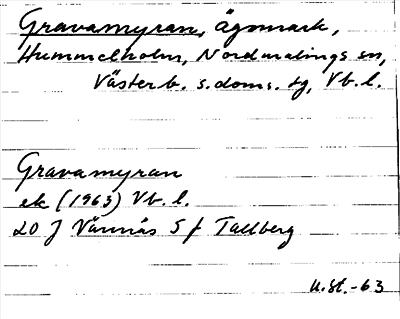 Gravamyran, ägomark,
Hummelholm, Nordmalings sn,
Västerb. s. doms. tg, Vb. l.
Gravamyran
ek (1963) Vb. l.
20 J Vännäs S f Tallberg
U.St.-63